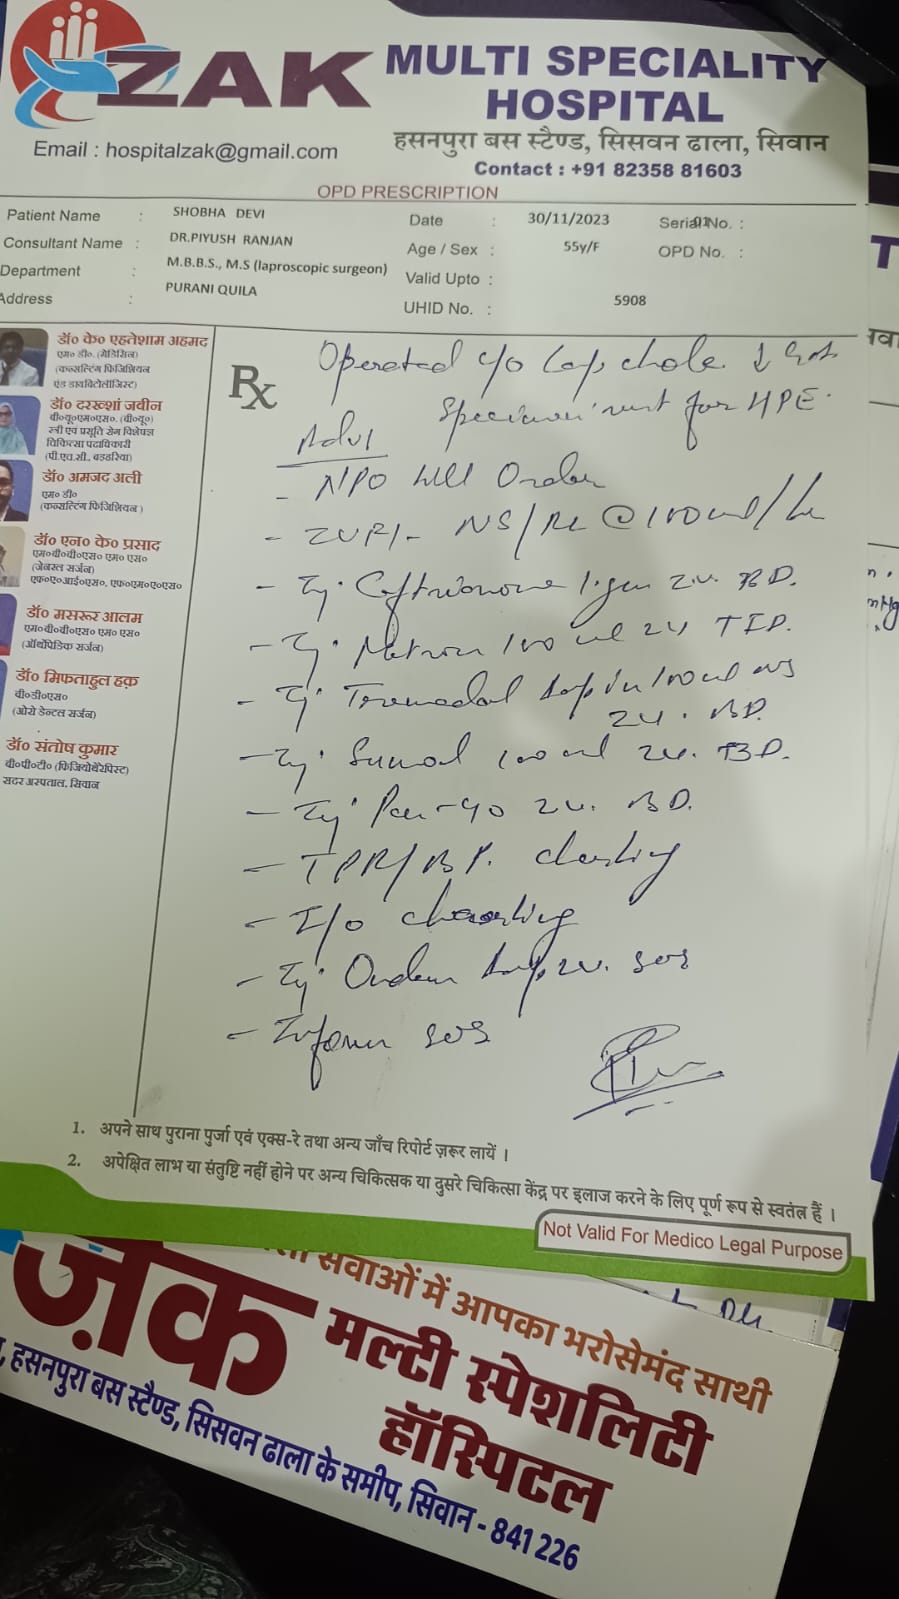 ZAK
MULTI SPECIALITY
HOSPITAL
हसनपुरा बस स्टैण्ड, सिसवन ढाला, सिवान
Email : hospitalzak@gmail.com
Contact : +91 82358 81603
OPD PRESCRIPTION
Patient Name : SHOBHA DEVI
Consultant Name : DR.PIYUSH RANJAN
Department : M.B.B.S., M.S (laproscopic surgeon)
Address : PURANI QUILA
Date : 30/11/2023
Age / Sex : 55y/F
Valid Upto :
UHID No. : 5908
Serial No. : 01
OPD No. :
डॉ० के० एहतेशाम अहमद
एम० डी०. (मेडिसिन)
(कन्सल्टिंग फिजिशियन
एंड डायबिटोलॉजिस्ट)
डॉ० दरख्शां जबीन
बी०यू०एम०एस०. (बी०यू०)
स्त्री एवं प्रसूति रोग विशेषज्ञ
चिकित्सा पदाधिकारी
(पी.एच.सी., बड़हरिया)
डॉ० अमजद अली
एम० डी०
(कन्सल्टिंग फिजिशियन )
डॉ० एन० के० प्रसाद
एम०बी०बी०एस० एम० एस०
(जेनरल सर्जन)
एफ०ए०आई०एस०, एफ०एम०ए०एस०
डॉ० मसरूर आलम
एम०बी०बी०एस० एम० एस०
(ऑर्थोपेडिक सर्जन)
डॉ० मिफताहुल हक़
बी०डी०एस०
(ओरो डेन्टल सर्जन)
डॉ० संतोष कुमार
बी०पी०टी० (फिजियोथेरेपिस्ट)
सदर अस्पताल, सिवान
Rx
Operated c/o Lap chole
Specimen sent for HPE.
Advi
- NPO till Order
- IVF/- NS/RL @ 100ml/hr
- Inj. Ceftriaxone 1gm I.V. BD.
- Inj. Metron 100 ml IV TID.
- Inj. Tramadol 1amp in 100ml NS
IV. BD.
- Inj. 100 ml IV. TID.
- Inj. Pan-40 IV. BD.
- TPR/B.P. charting
- I/O charting
- Inj. Ondem 1amp IV. SOS
- Inform SOS
1. अपने साथ पुराना पुर्जा एवं एक्स-रे तथा अन्य जाँच रिपोर्ट ज़रूर लायें ।
2. अपेक्षित लाभ या संतुष्टि नहीं होने पर अन्य चिकित्सक या दुसरे चिकित्सा केंद्र पर इलाज करने के लिए पूर्ण रूप से स्वतंत्र हैं ।
Not Valid For Medico Legal Purpose
सेवाओं में आपका भरोसेमंद साथी
ज़ैक
मल्टी स्पेशलिटी
हॉस्पिटल
हसनपुरा बस स्टैण्ड, सिसवन ढाला के समीप, सिवान - 841 226